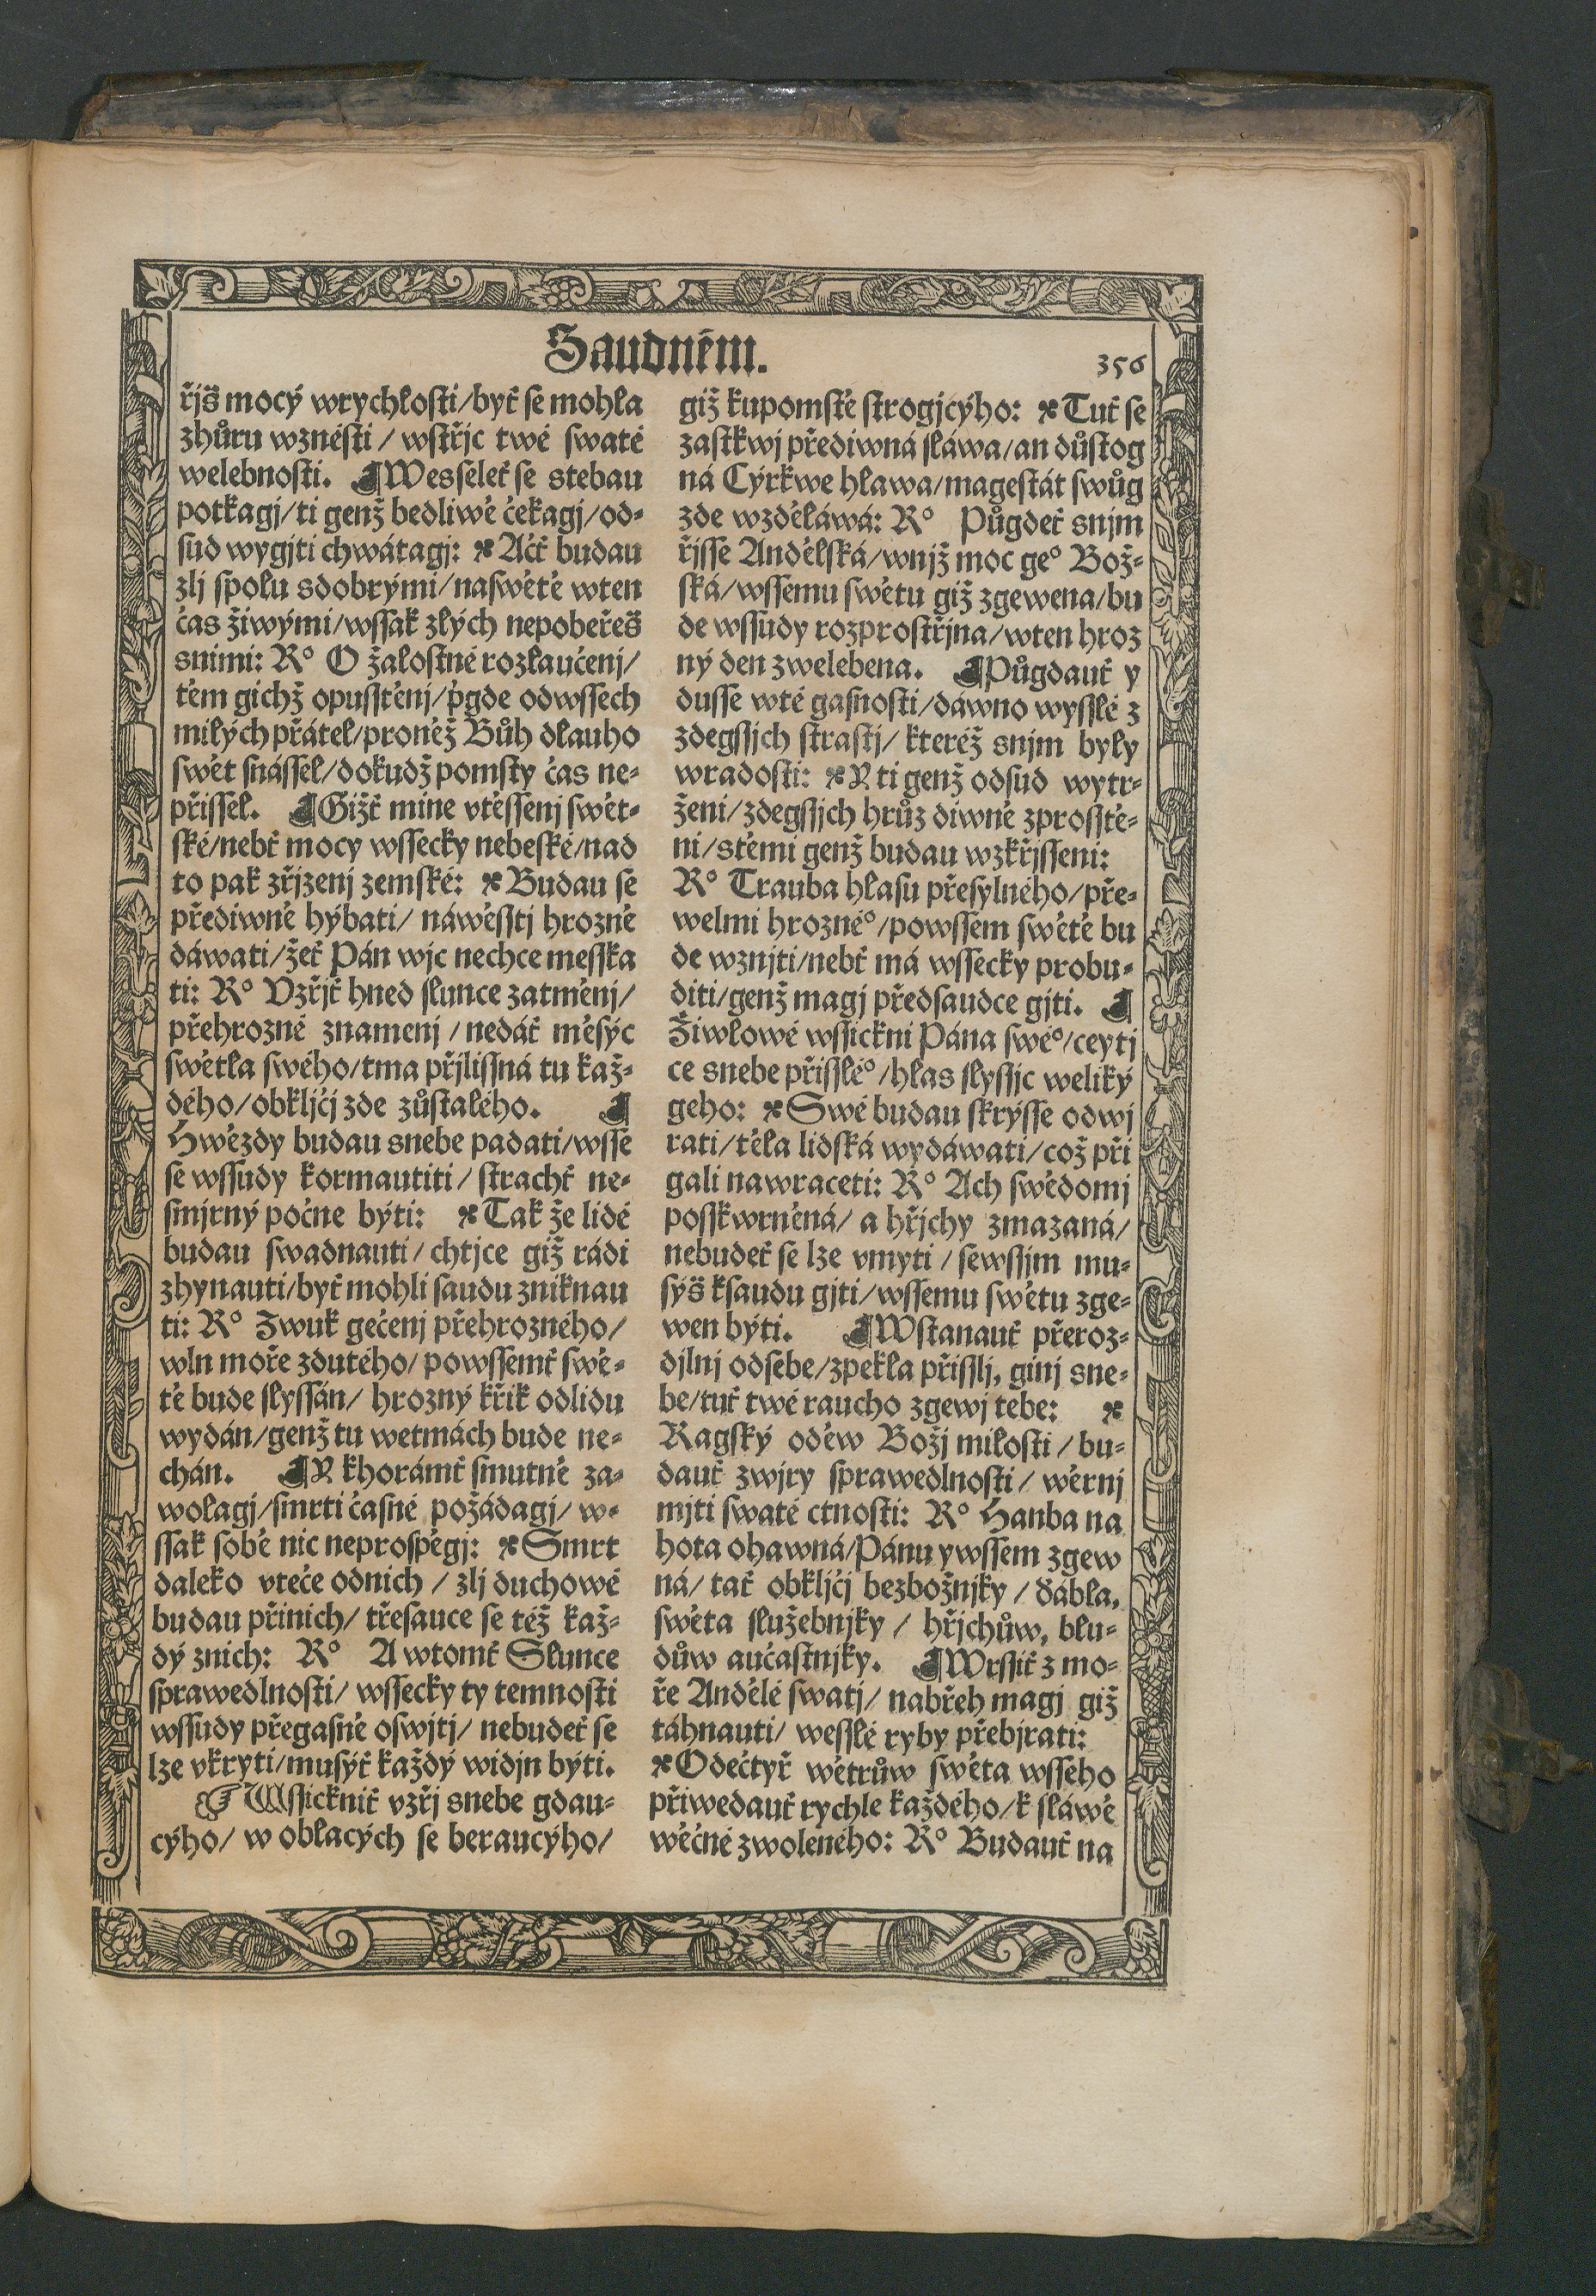 Saudném.
356
řjš mocý wrychlosti/byť se mohla
zhůru wznésti / wstřjc twé swaté
welebnosti. ¶Wesseleť se stebau
potkagj/ti genž bedliwě čekagj/od⸗
sud wygjti chwátagj: ※Ačť budau
zlj spolu sdobrými/naswětě wten
čas žiwými/wssak zlých nepobeřeš
snimi: R° O žalostné rozlaučenj/
těm gichž opusstěnj/ṗgde odwssech
milých přátel/proněž Bůh dlauho
swět snássel/dokudž pomsty čas ne⸗
přissel. ¶Gižť mine vtěssenj swět⸗
ské/nebť mocy wssecky nebeské/nad
to pak zřjzenj zemské: ※Budau se
předivně hýbati/ náwěsstj hrozné
dáwati/žeť Pán wjc nechce messka
ti: R° Vzřjť hned slunce zatměnj/
přehrozné znamenj / nedáť měsýc
swětla swého/tma přjlissná tu kaž⸗
dého/obkljčj zde zůstalého. ¶
Hwězdy budau snebe padati/wsse
se wssudy kormautiti/ strachť ne⸗
smjrný počne býti: ※Tak že lidé
budau swadnauti / chtjce giž rádi
zhynauti/byť mohli saudu zniknau
ti: R° Zwuk gečenj přehrozného/
wln moře zdutého/ powssemť swě⸗
tě bude slyssán/ hrozný křik odlidu
wydán/genž tu wetmách bude ne⸗
chán. ¶Y khorámť smutně za⸗
wolagj/smrti časné požádagj/ w⸗
ssak sobě nic neprospěgj: ※Smrt
daleko vteče odnich / zlj duchowé
budau přinich/ třesauce se též kaž⸗
dý znich: R° A wtomť Slunce
sprawedlnosti/ wssecky ty temnosti
wssudy přegasně oswjtj/ nebudeť se
lze vkryti/musýť každý widjn býti.
☞ Wssickniť vzřj snebe gdau⸗
cýho/ w oblacých se beraucýho/
giž kupomstě strogjcýho: ※Tuť se
zastkwj předivná sláwa/an důstog
ná Cýrkwe hlawa/magestát swůg
zde wzděláwá: R° Půgdeť snjm
řjsse Andělská/wnjž moc ge° Bož⸗
ská/wssemu swětu giž zgewena/bu
de wssudy rozprostřjna/wten hroz
ný den zwelebena. ¶Půgdauť y
dusse wté gasnosti/dáwno wysslé z
zdegssjch strastj/ kteréž snjm byly
wradosti: ※Y ti genž odsud wytr⸗
ženi/zdegssjch hrůz diwně zprosstě⸗
ni/stěmi genž budau wzkřjsseni:
R° Trauba hlasu přesylného/pře⸗
welmi hrozné°/powssem swětě bu
de wznjti/nebť má wssecky probu⸗
diti/genž magj předsaudce gjti. ¶
Žiwlowé wssickni Pána swé°/ceytj
ce snebe přisslé°/hlas slyssjc weliký
geho: ※Swé budau skrýsse odwj
rati/těla lidská wydáwati/což při
gali nawraceti: R° Ach swědomj
posskwrněná/ a hřjchy zmazaná/
nebudeť se lze vmyti / sewssjm mu⸗
sýš ksaudu gjti/wssemu swětu zge⸗
wen býti. ¶Wstanauť přeroz⸗
djlnj odsebe/zpekla přisslj, ginj sne⸗
be/tuť twé raucho zgewj tebe: ※
Ragský oděw Božj milosti / bu⸗
dauť zwjry sprawedlnosti / wěrnj
mjti swaté ctnosti: R° Hanba na
hota ohawná/Pánu ywssem zgew
ná/ tať obkljčj bezbožnjky / ďábla,
swěta služebnjky / hřjchůw, blu⸗
důw aučastnjky. ¶Wrssiť z mo⸗
ře Andělé swatj/ nabřeh magj giž
táhnauti/ wesslé ryby přebjrati:
※Odečtyř wětrůw swěta wsseho
přiwedauť rychle každého/k sláwě
wěčné zwoleného: R° Budauť na